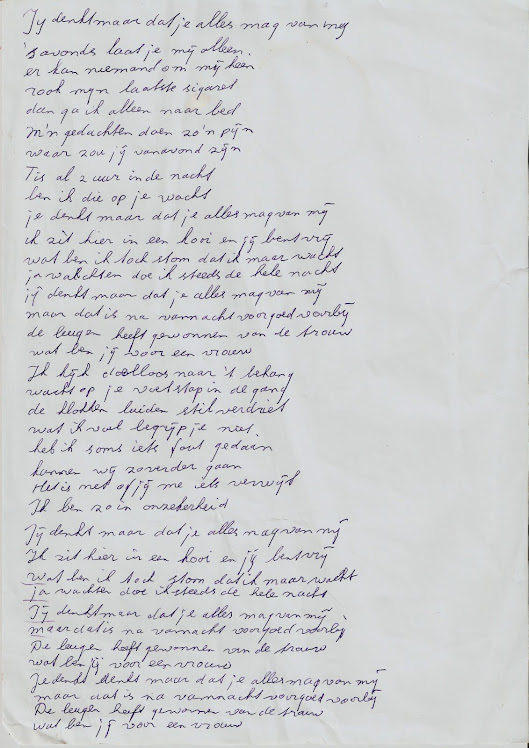 Jij denkt maar dat je alles mag van mij
's avonds laat je mij alleen.
er kan niemand om mij heen
rook mijn laatste sigaret
dan ga ik alleen naar bed
M'n gedachten doen zo'n pijn
waar zou jij vanavond zijn
Tis al 2 uur in de nacht
ben ik die op je wacht
je denkt maar dat je alles mag van mij
ik zit hier in een kooi en jij bent vrij
wat ben ik toch stom dat ik maar wacht
ja wachten doe ik steeds de hele nacht
jij denkt maar dat je alles mag van mij
maar dat is na vannacht voorgoed voorbij
de leugen heeft gewonnen van de trouw
wat ben jij voor een vrouw
Ik kijk doelloos naar 't behang
wacht op je voetstap in de gang
de klokken luiden stil verdriet
wat ik voel begrijp je niet
heb ik soms iets fout gedaan
kunnen wij zo verder gaan
Het is net of jij me iets verwijt
Ik ben zo in onzekerheid
Jij denkt maar dat je alles mag van mij
Ik zit hier in een kooi en jij bent vrij
wat ben ik toch stom dat ik maar wacht
ja wachten doe ik steeds de hele nacht
Jij denkt maar dat je alles mag van mij
maar dat is na vannacht voorgoed voorbij
De leugen heeft gewonnen van de trouw
wat ben jij voor een vrouw
Je denkt denkt maar dat je alles mag van mij
maar dat is na vannacht voorgoed voorbij
De leugen heeft gewonnen van de trouw
wat ben jij voor een vrouw